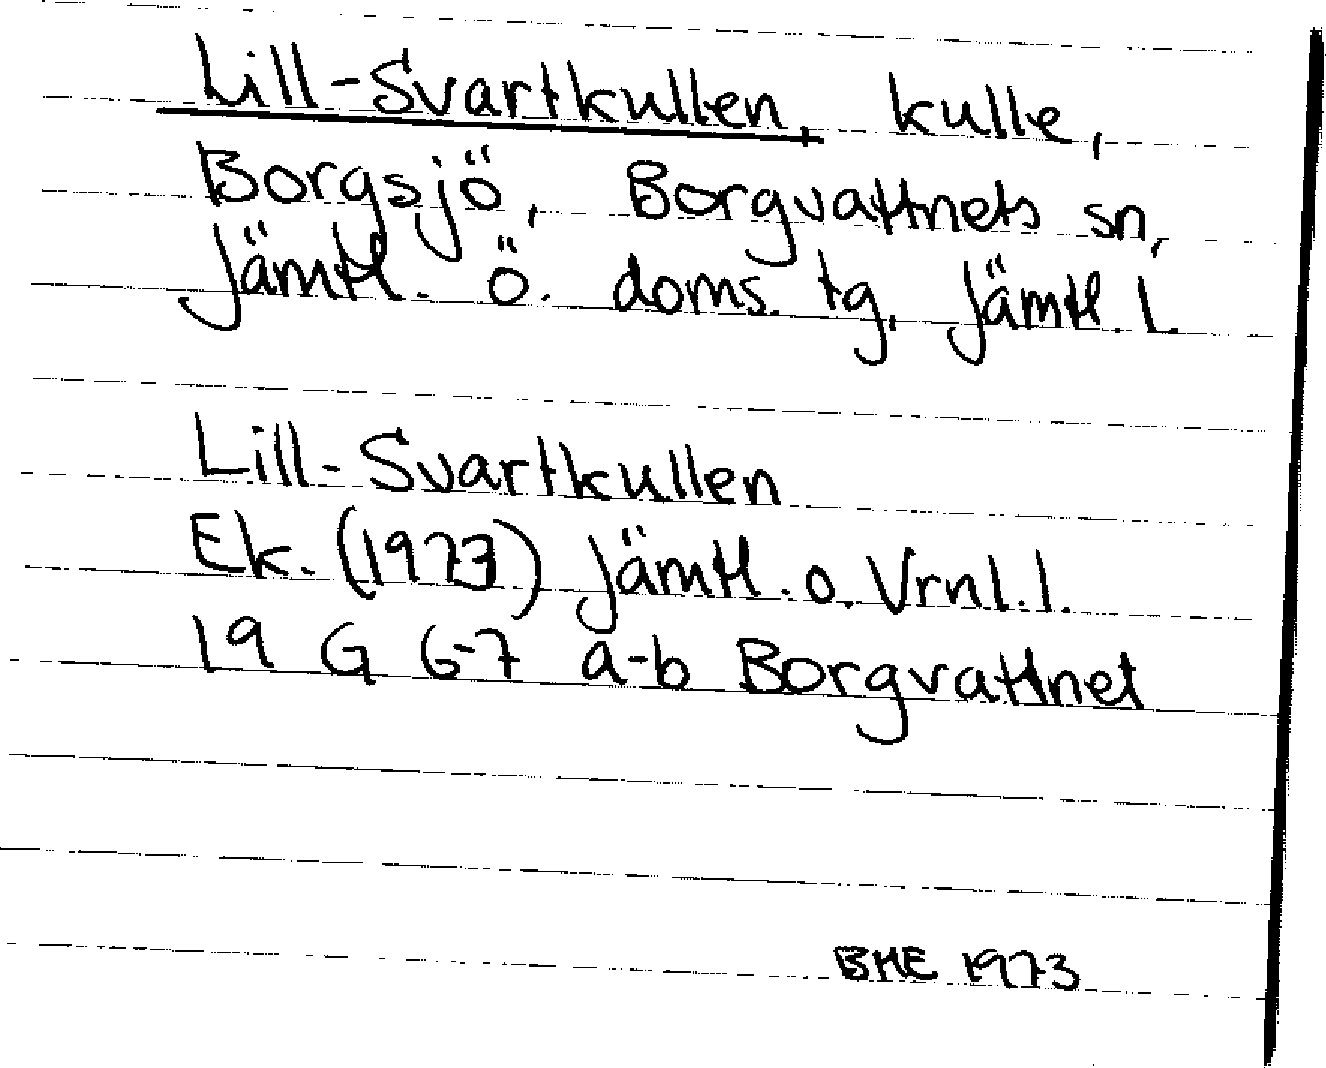 Lill-Svartkullen, kulle,
Borgsjö, Borgvattnets sn,
Jämtl. ö. doms. tg, Jämtl. l.
Lill-Svartkullen
Ek. (1973) Jämtl. o. Vrnl. l.
19 G 6-7 a-b Borgvattnet
BME 1973